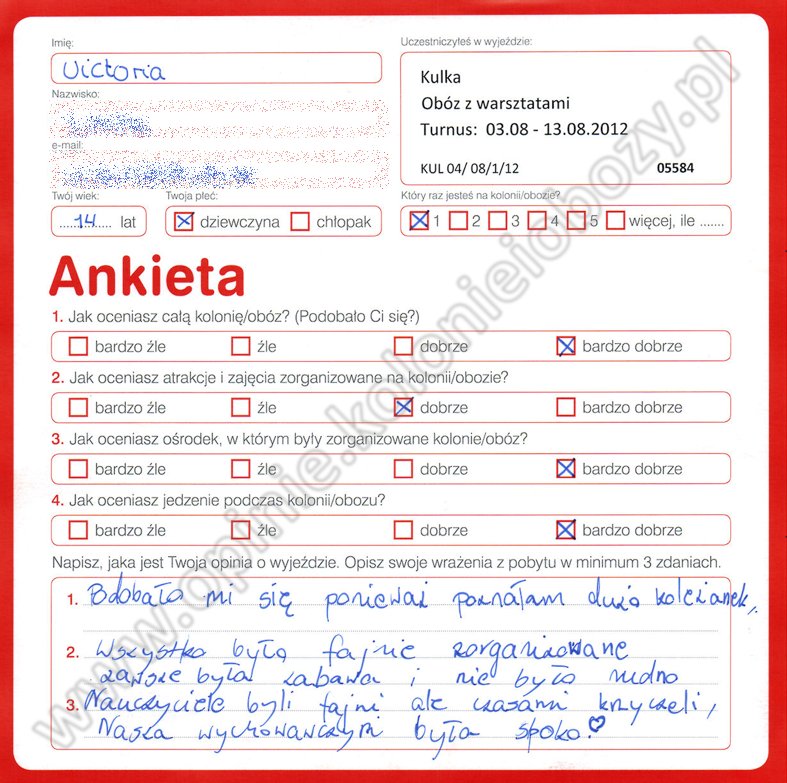 Imię:
Victoria
Nazwisko:
e-mail:
Uczestniczyłeś w wyjeździe:
Kulka
Obóz z warsztatami
Turnus: 03.08 - 13.08.2012
KUL 04/ 08/1/12 05584
Twój wiek:
14 lat
Twoja płeć:
dziewczyna chłopak
Który raz jesteś na kolonii/obozie?
1 2 3 4 5 więcej, ile .......
Ankieta
1. Jak oceniasz całą kolonię/obóz? (Podobało Ci się?)
bardzo źle źle dobrze bardzo dobrze
2. Jak oceniasz atrakcje i zajęcia zorganizowane na kolonii/obozie?
bardzo źle źle dobrze bardzo dobrze
3. Jak oceniasz ośrodek, w którym były zorganizowane kolonie/obóz?
bardzo źle źle dobrze bardzo dobrze
4. Jak oceniasz jedzenie podczas kolonii/obozu?
bardzo źle źle dobrze bardzo dobrze
Napisz, jaka jest Twoja opinia o wyjeździe. Opisz swoje wrażenia z pobytu w minimum 3 zdaniach.
1. Podobało mi się ponieważ poznałam dużo koleżanek,
2. Wszystko było fajnie zorganizowane
zawsze była zabawa i nie było nudno
3. Nauczyciele byli fajni ale czasami krzyczeli,
Nasza wychowawczyni była spoko.
www.opinie.kolonieiobozy.pl